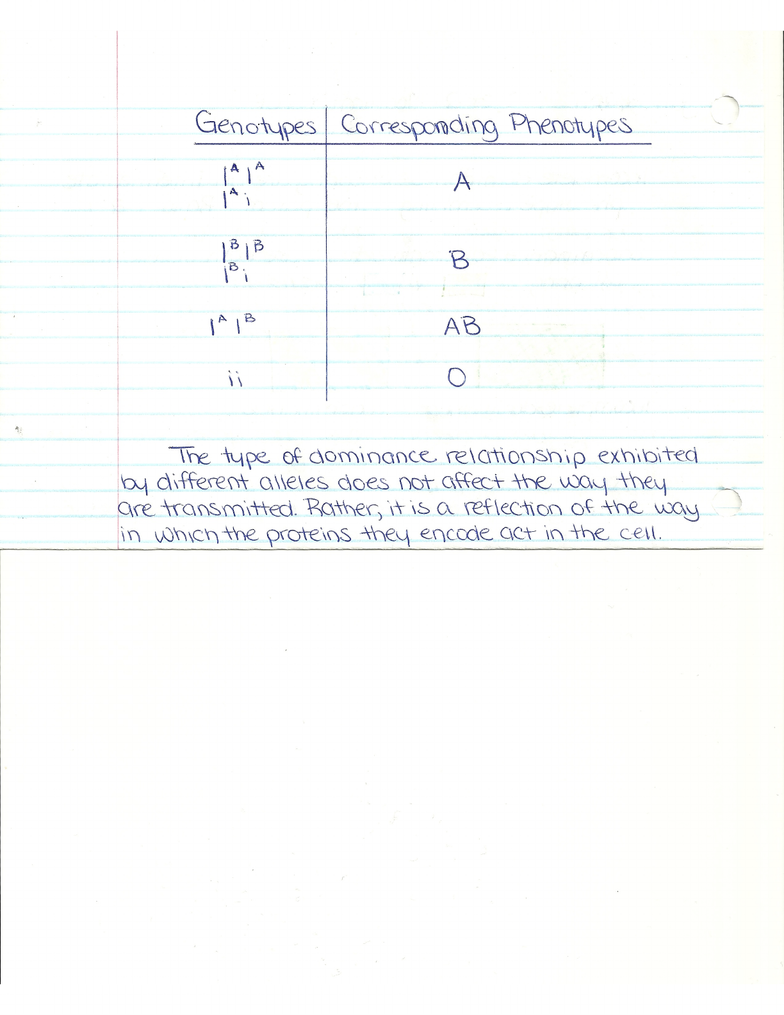 Genotypes Corresponding Phenotypes
IᴬIᴬ
Iᴬi
A
IᴮIᴮ
Iᴮi
B
IᴬIᴮ AB
ii O
The type of dominance relationship exhibited
by different alleles does not affect the way they
are transmitted. Rather, it is a reflection of the way
in which the proteins they encode act in the cell.